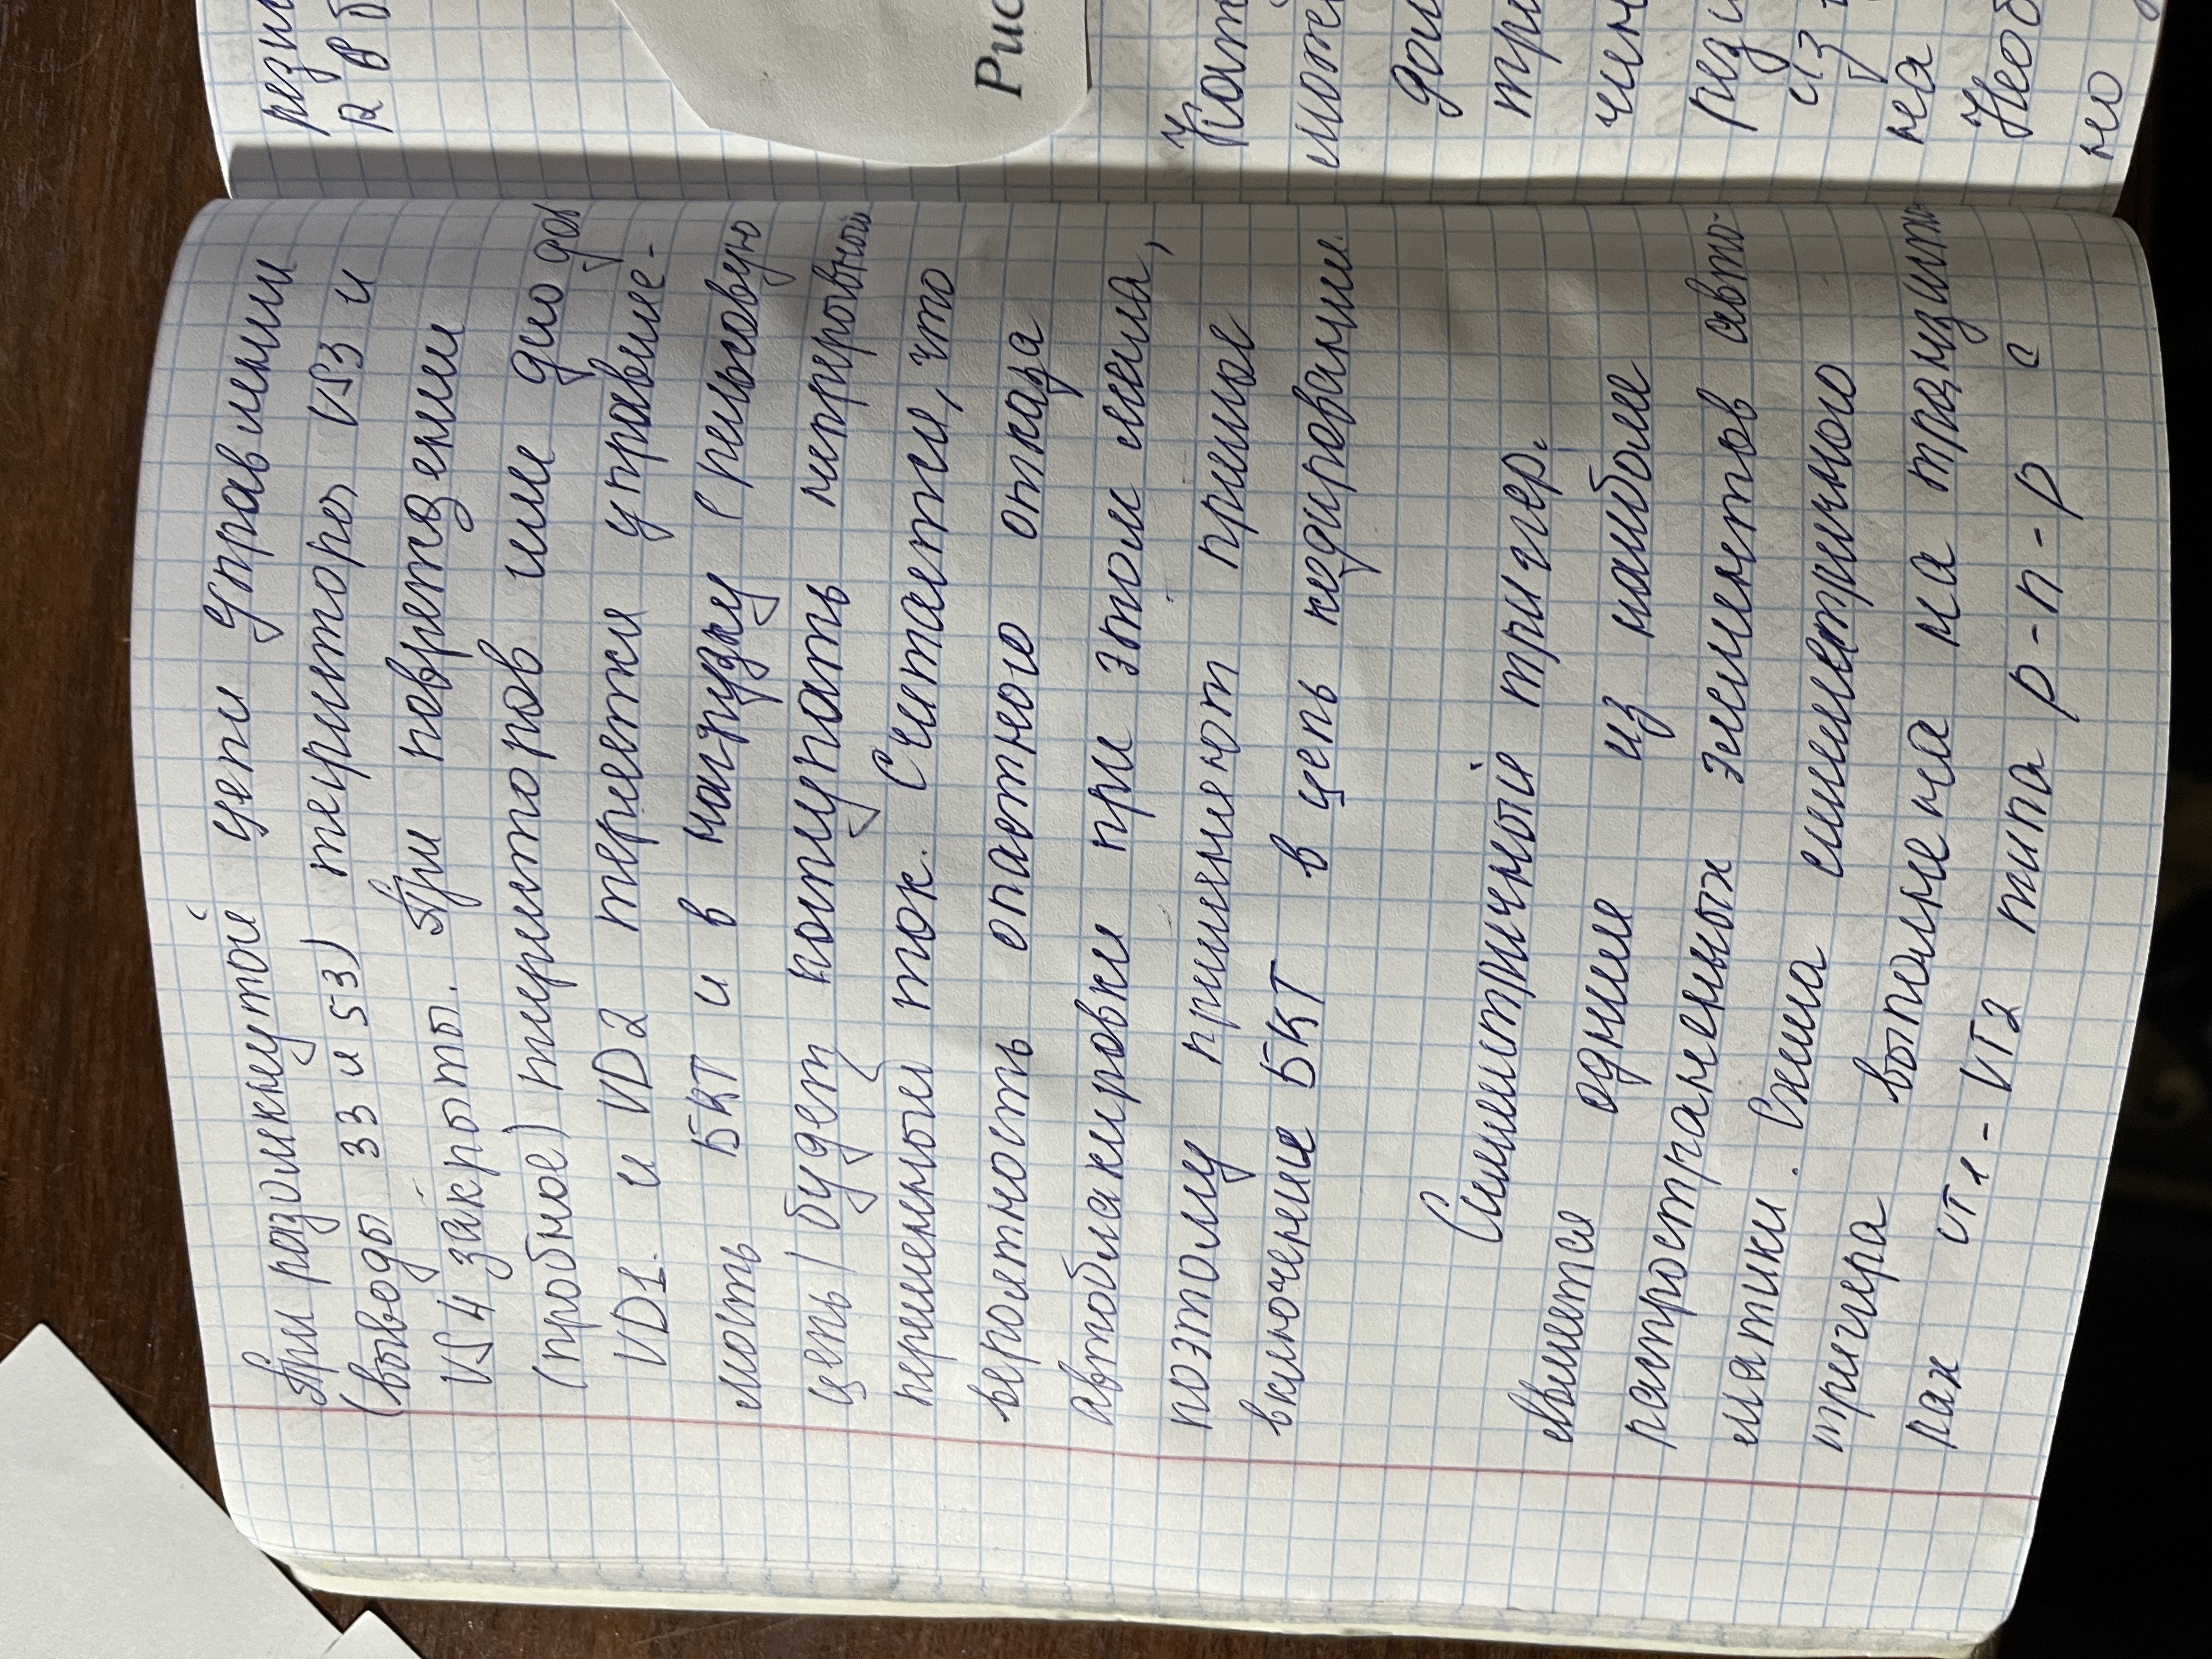 При разомкнутой цепи управлении
(выводы 33 и 53) теристоров VS3 и
VS4 закрыты. При повреждении
(пробное) теристоров или диоды
VD1. и VD2 теряетки управляе-
мость БКТ и в нагрузку (рельсовую
цепь) будет коступать непрерывной
переменный ток. Считается, что
вероятность опастного отказа
автоблакировки при этом мала,
поэтому применяют прямое
включение БКТ в цепь кодирования.
Симметричный тригер.
является одним из наиболе
растространеных элементов авто-
матики. Схема симметричного
тригера выполнена на транзисто-
рах VT1 - VT2 типа p-n-p с
рези
R В б
Рис
Кат
моте
дои
три
чен
рези
из
на
Необ
но